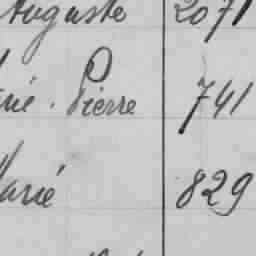 Auguste 2071
Pierre 741
Marié 829